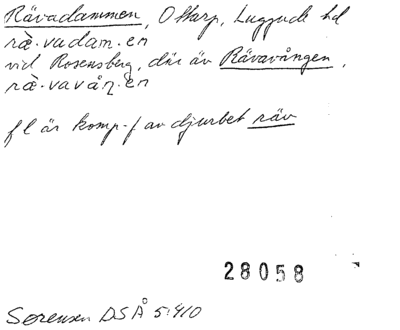 Rävadammen, Ottarp, Luggude hd
ræ̀·vadam·en
vid Rosensberg, där är Rävavången,
ræ̀·vavåŋ·en
fl är komp-f av djurbet räv
28058
Sörensen DSÅ 5:410